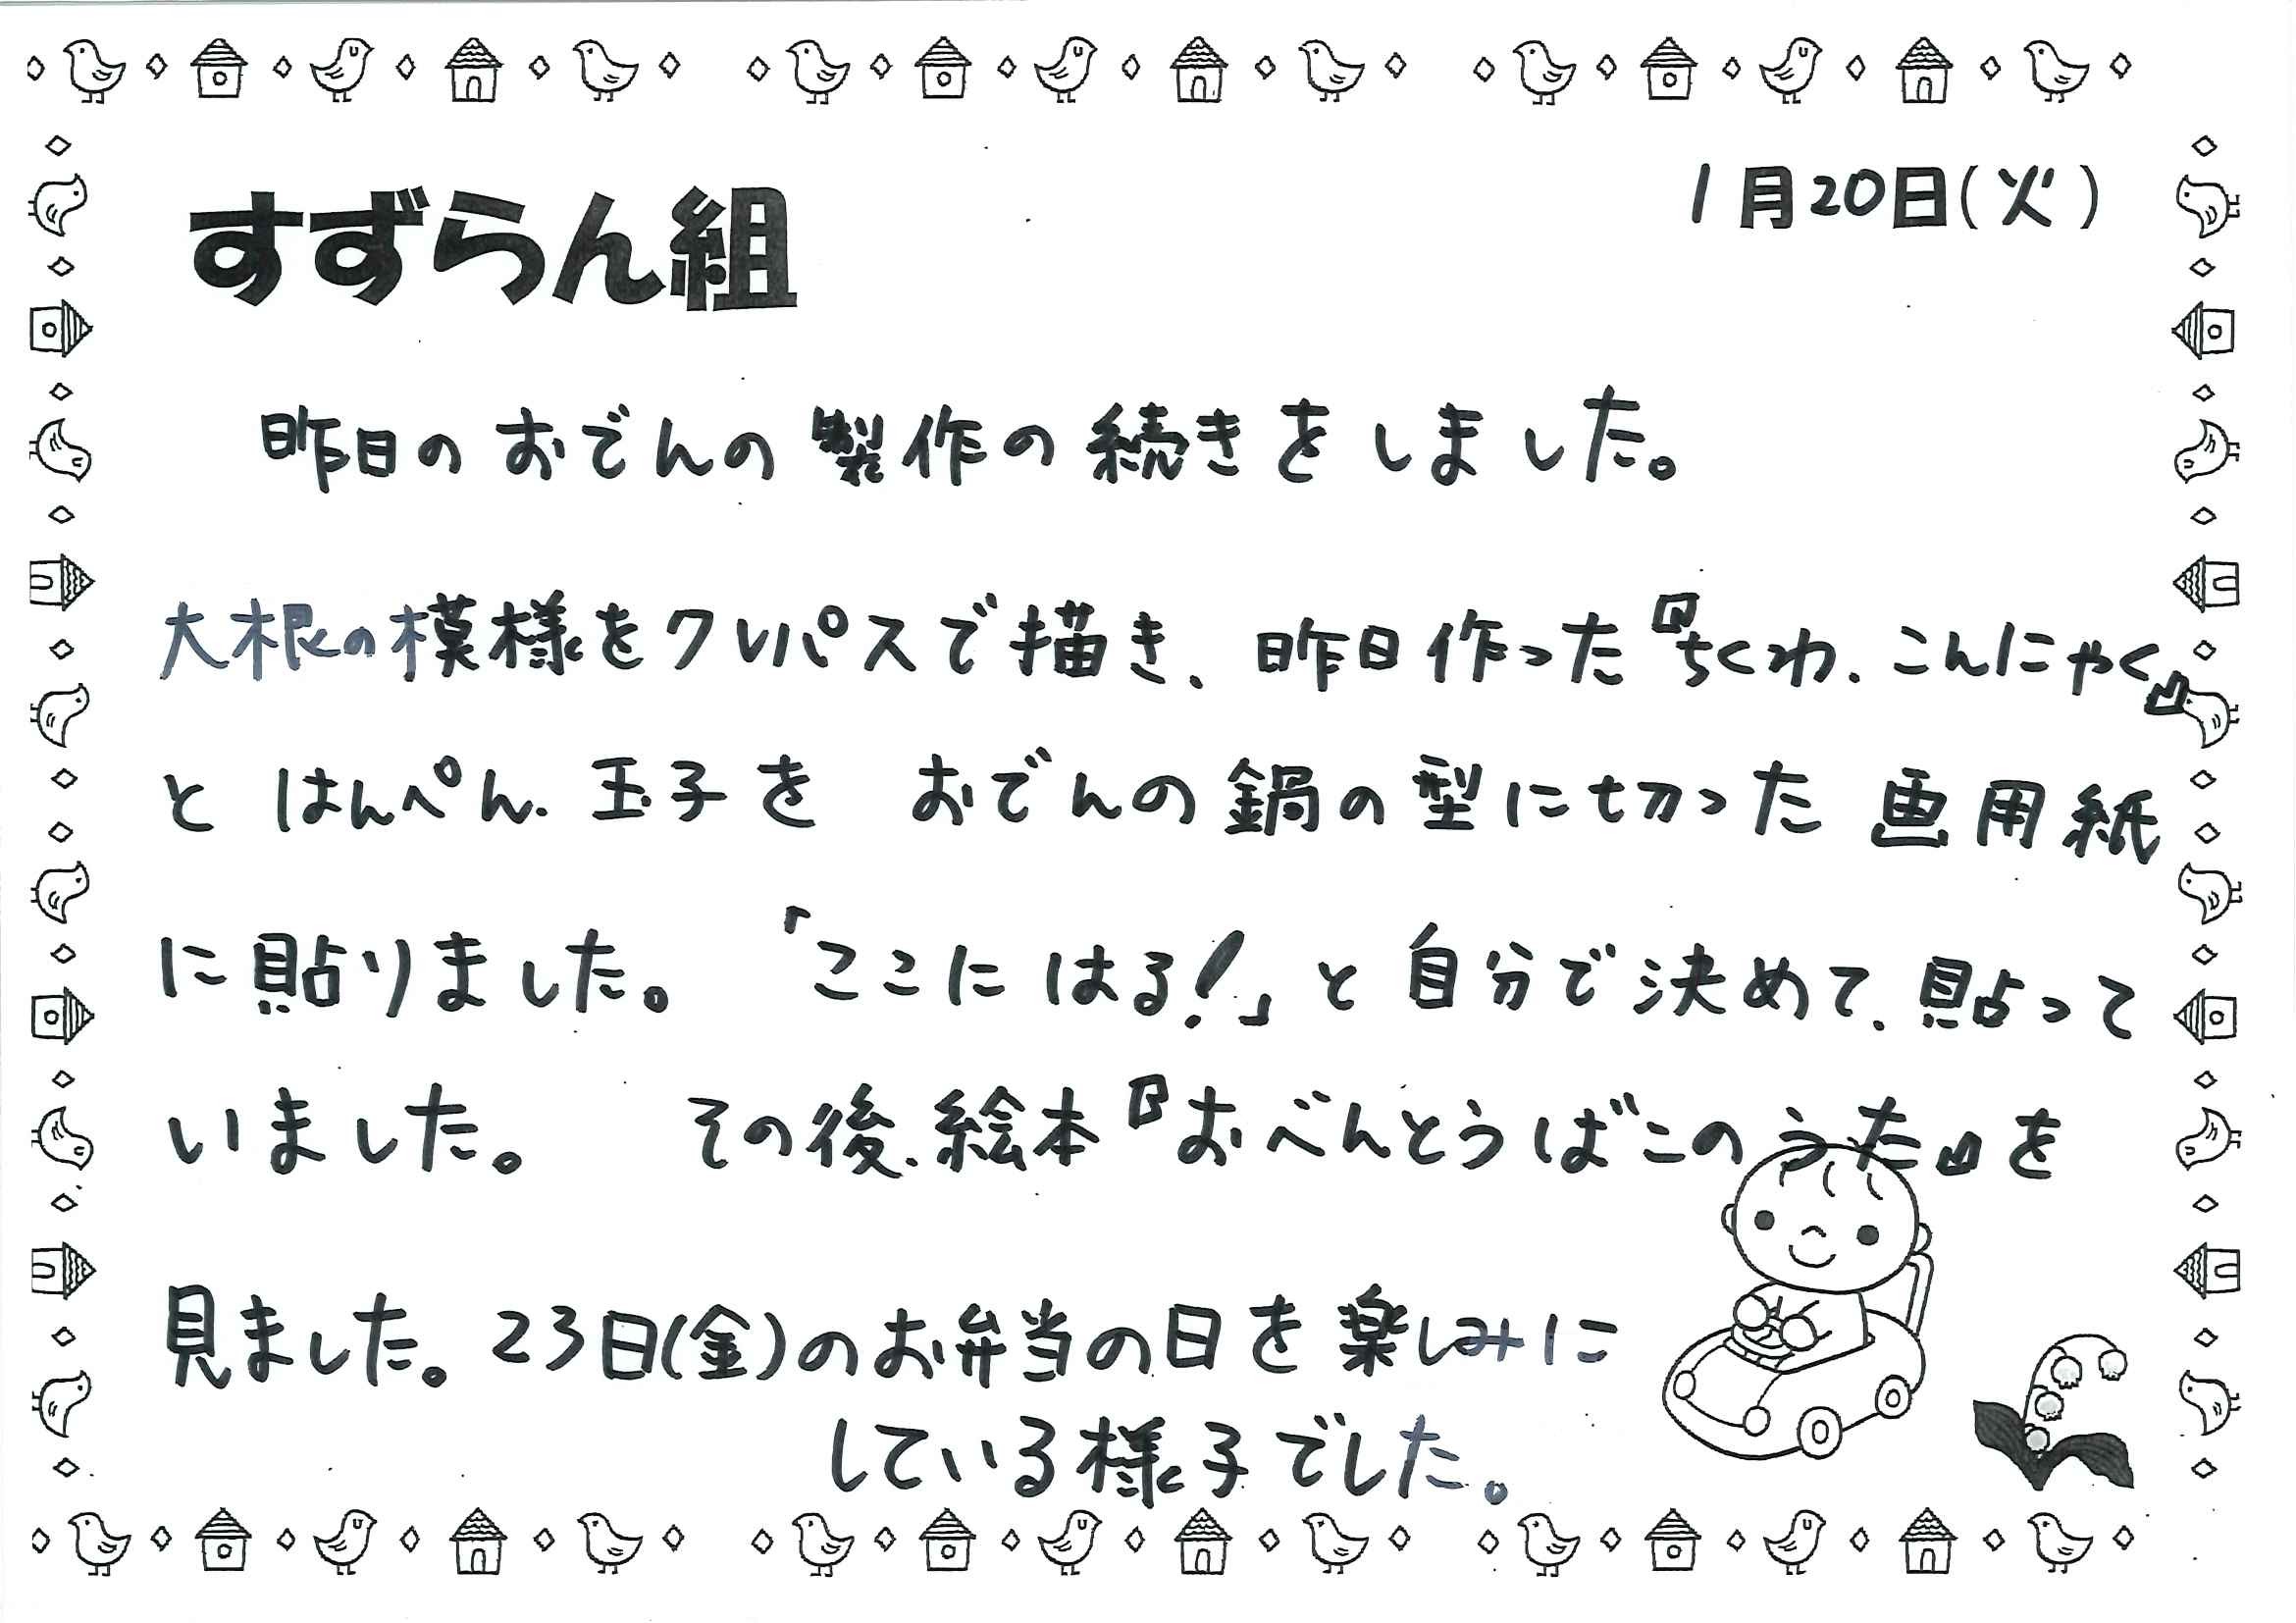 すずらん組
1月20日(火)
昨日のおでんの製作の続きをしました。
大根の模様をクレパスで描き、昨日作った『ちくわ、こんにゃく』
とはんぺん、玉子を おでんの鍋の型に切った画用紙
に貼りました。「ここにはる!」と自分で決めて、貼って
いました。 その後、絵本『おべんとうばこのうた』を
見ました。23日(金)のお弁当の日を楽しみに
している様子でした。